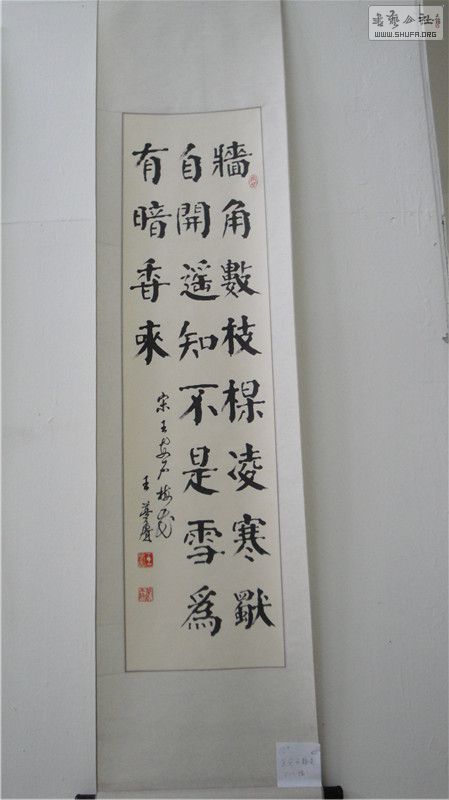 牆角數枝楳凌寒獨
自開遥知不是雪爲
有暗香來
宋王安石梅花
王
書藝公社
WWW.SHUFA.ORG